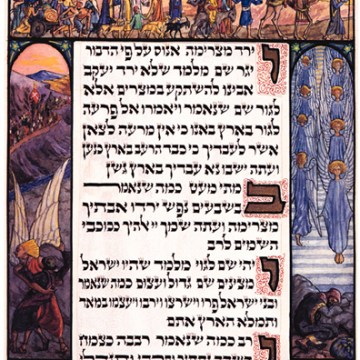 וירד מצרימה אנוס על פי הדבור
ויגר שם מלמד שלא ירד יעקב
אבינו להשתקע במצרים אלא
לגור שם שנאמר ויאמרו אל פרעה
לגור בארץ באנו כי אין מרעה לצאן
אשר לעבדיך כי כבד הרעב בארץ כנען
ועתה ישבו נא עבדיך בארץ גשן
במתי מעט כמה שנאמר
בשבעים נפש ירדו אבתיך
מצרימה ועתה שמך יי אלהיך ככוכבי
השמים לרב
ויהי שם לגוי מלמד שהיו ישראל
מצוינים שם גדול ועצום כמה שנאמר
ובני ישראל פרו וישרצו וירבו ויעצמו במאד
ותמלא הארץ אתם
ורב כמה שנאמר רבבה כצמח